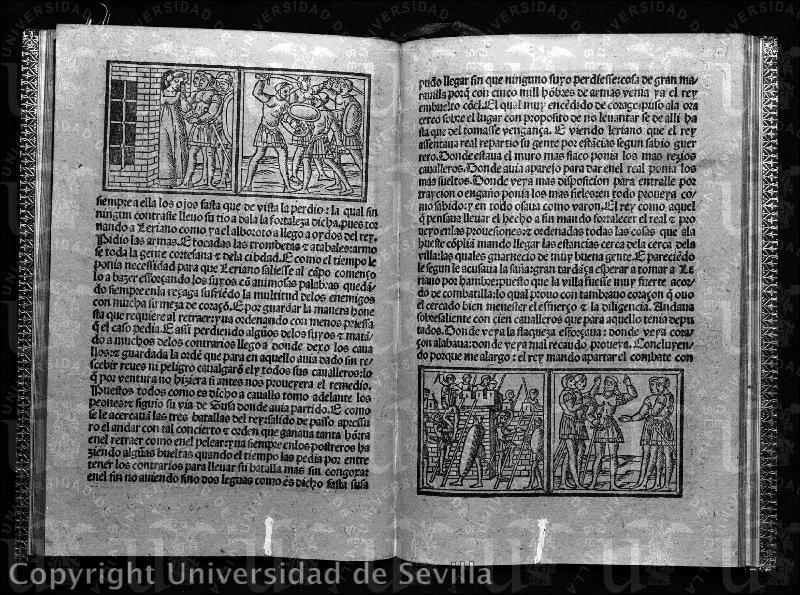 siempre a ella los ojos fasta que de vista la perdio: la qual sin
ningun contraste lleuo su tio a dala la fortaleza dicha. pues tor
nando a Leriano como ya el alboroto allego a oydos del rey.
Pidio las armas. E tocadas las trompetas ⁊ atabales: armo
se toda la gente cortesana ⁊ dela cibdad. E como el tiempo le
ponia necessidad para que Leriano saliesse al cãpo començo
lo a hazer esforçando los suyos cõ animosas palabras quedã
do siempre enla reçaga sufriẽdo la multitud delos enemigos
con mucha firmeza de coraçõ. E por guardar la manera hone
sta que requiere al retraer: yua ordenando con menos priessa
q̃ el caso pedia. E assi perdiendo algũos delos suyos ⁊ matã
do a muchos delos contrarios llego a donde dexo los caua
llos: ⁊ guardada la ordẽ que para en aquello auia dado sin re-
scebir reues ni peligro caualgarõ el y todos sus caualleros: lo
q̃ por ventura no hiziera si antes nos proueyera el remedio.
Puestos todos como es dicho a cauallo tomo adelante los
peones: ⁊ siguio su via de Susa donde auia partido. E como
se le acercauã las tres batallas del rey: salido de passo apressu
ro el andar con tal concierto ⁊ orden que ganaua tanta hõrra
enel retraer como enel pelear: yua siempre enlos postreros ha
ziendo algũas bueltas quando el tiempo las pedia por entre
tener los contrarios para lleuar su batalla mas sin congoxa:
enel fin no auiendo sino dos leguas como es dicho fasta susa
pudo llegar sin que ninguno suyo perdiesse: cosa de gran ma
rauilla porq̃ con cinco mill hõbres de armas venia ya el rey
embuelto cõel. El qual muy encẽdido de coraje: puso ala ora
cerco sobre el lugar con proposito de no leuantar se de alli ha
sta que del tomasse vengança. E viendo leriano que el rey
assentaua real repartio su gente por estãcias segun sabio guer
rero. Donde estaua el muro mas flaco ponia los mas rezios
caualleros. Donde auia aparejo para dar enel real ponia los
mas sueltos. Donde veya mas disposicion para entralle por
trayçion o engaño ponia los mas fieles: en todo proueya co
mo sabido: y en todo osaua como varon. El rey como aquel
q̃ pensaua lleuar el hecho a fin mando fortalecer el real ⁊ pro
ueyo enlas prouisiones: ⁊ ordenadas todas las cosas que ala
hueste cõplia mando llegar las estancias cerca dela cerca dela
villa: las quales guarnecio de muy buena gente. E pareciẽdo
le segun le acusaua la saña: gran tardãça esperar a tomar a Le
riano por hambre: puesto que la villa fuesse muy fuerte acor
do de combatilla: lo qual prouo con tam brauo coraçon q̃ ouo
el cercado bien menester el esfuerço ⁊ la diligencia. Andaua
sobresaliente con cien caualleros que para aquello tenia depu
tados. Donde veya la flaqueza esforçaua: donde veya cora-
çon alabaua: donde veya mal recaudo proueya. Concluyen-
do porque me alargo: el rey mando apartar el combate con
Copyright Universidad de Sevilla